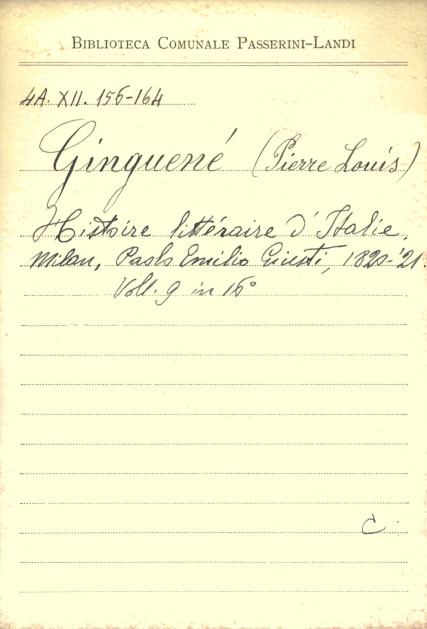 BIBLIOTECA COMUNALE PASSERINI-LANDI
4A. XII. 156-164
Ginguené (Pierre Louis)
Histoire littéraire d'Italie.
Milan, Paolo Emilio Giusti, 1820-'21.
Voll. 9 in 16°
C.